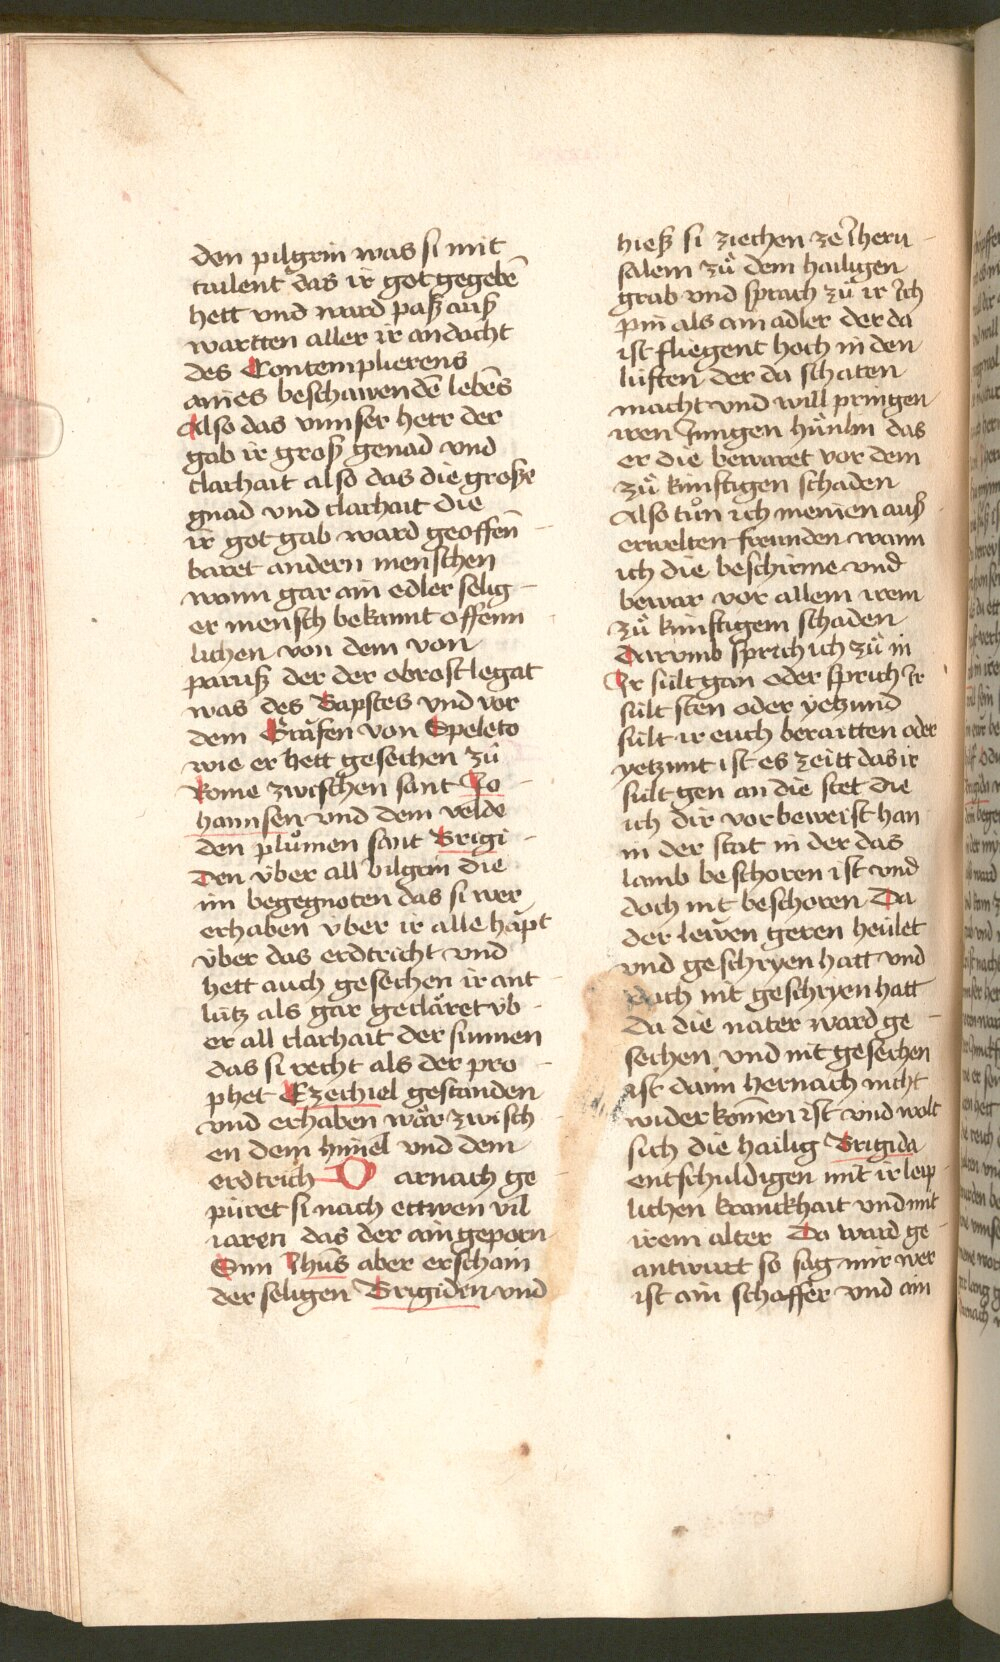 den pilgrin was si mit
tailent das ir got gegebē
hett vnd ward paß auß
wartten aller ir andacht
des Contemplierens
aines beschawendē lebēs
Also das vnnser herr der
gab ir groß genad vnd
clarhait also das die große
gnad vnd clarhait die
ir got gab ward geoffen̄
baret andern menschen
wann gar ain edler selig
er mensch bekannt offenn
lichen von dem von
pariß der der obrost legat
was des Bapstes vnd vor
dem Gräfen von Speleto
wie er hett gesechen zů
Rome zwischen sant Jo
hannsen vnd dem velde
den plůmen sant Brigi
den vber all bilgrin die
im begegnoten das si wer
erhaben vber ir alle häpt
vber das erdtricht vnd
hett auch gesechen ir ant
lütz als gar geclåret vb
er all clarhait der sunnen
das si recht als der pro
phet Ezechiel gestanden
vnd erhaben wår zwisch
en dem himel vnd dem
erdtrich D arnach ge
püret si nach ettwen vil
iaren das der aingeporn
Sun Jhūs aber erschain
der seligen Brigiden vnd
hieß si ziechen ze Jheru
salem zů dem hailigen
grab vnd sprach zů ir Ich
pin als ain adler der da
ist fliegent hoch in den
lüften der da schaten
macht vnd will pringen
iren Jungen hünlin das
er die bewaret vor dem
zů künftigen schaden
Also tůn ich meinen auß
erwelten freunden wann
ich die beschirme vnd
bewar vor allem irem
zů künftigem schaden
Darvmb sprich ich zů in
Ir sült gan oder sprich Ir
sült sten oder yetzund
sült ir euch beraitten oder
yetzunt ist es zeitt das ir
sült gen an die stet die
ich dir vor beweist han
in der stat in der das
lamb beschoren ist vnd
doch nit beschoren Da
der lewen geren heület
vnd geschryen hatt vnd
doch nit geschryen hatt
da die nater ward ge
sechen vnd nit gesechen
ist dann hernach nicht
wider komen ist vnd wolt
sich die hailig Brigida
entschuldigen mit ir leip
lichen kranckhait vnd mit
irem alter Do ward ge
antwurt so sag mir wer
ist ain schaffer vnd ain